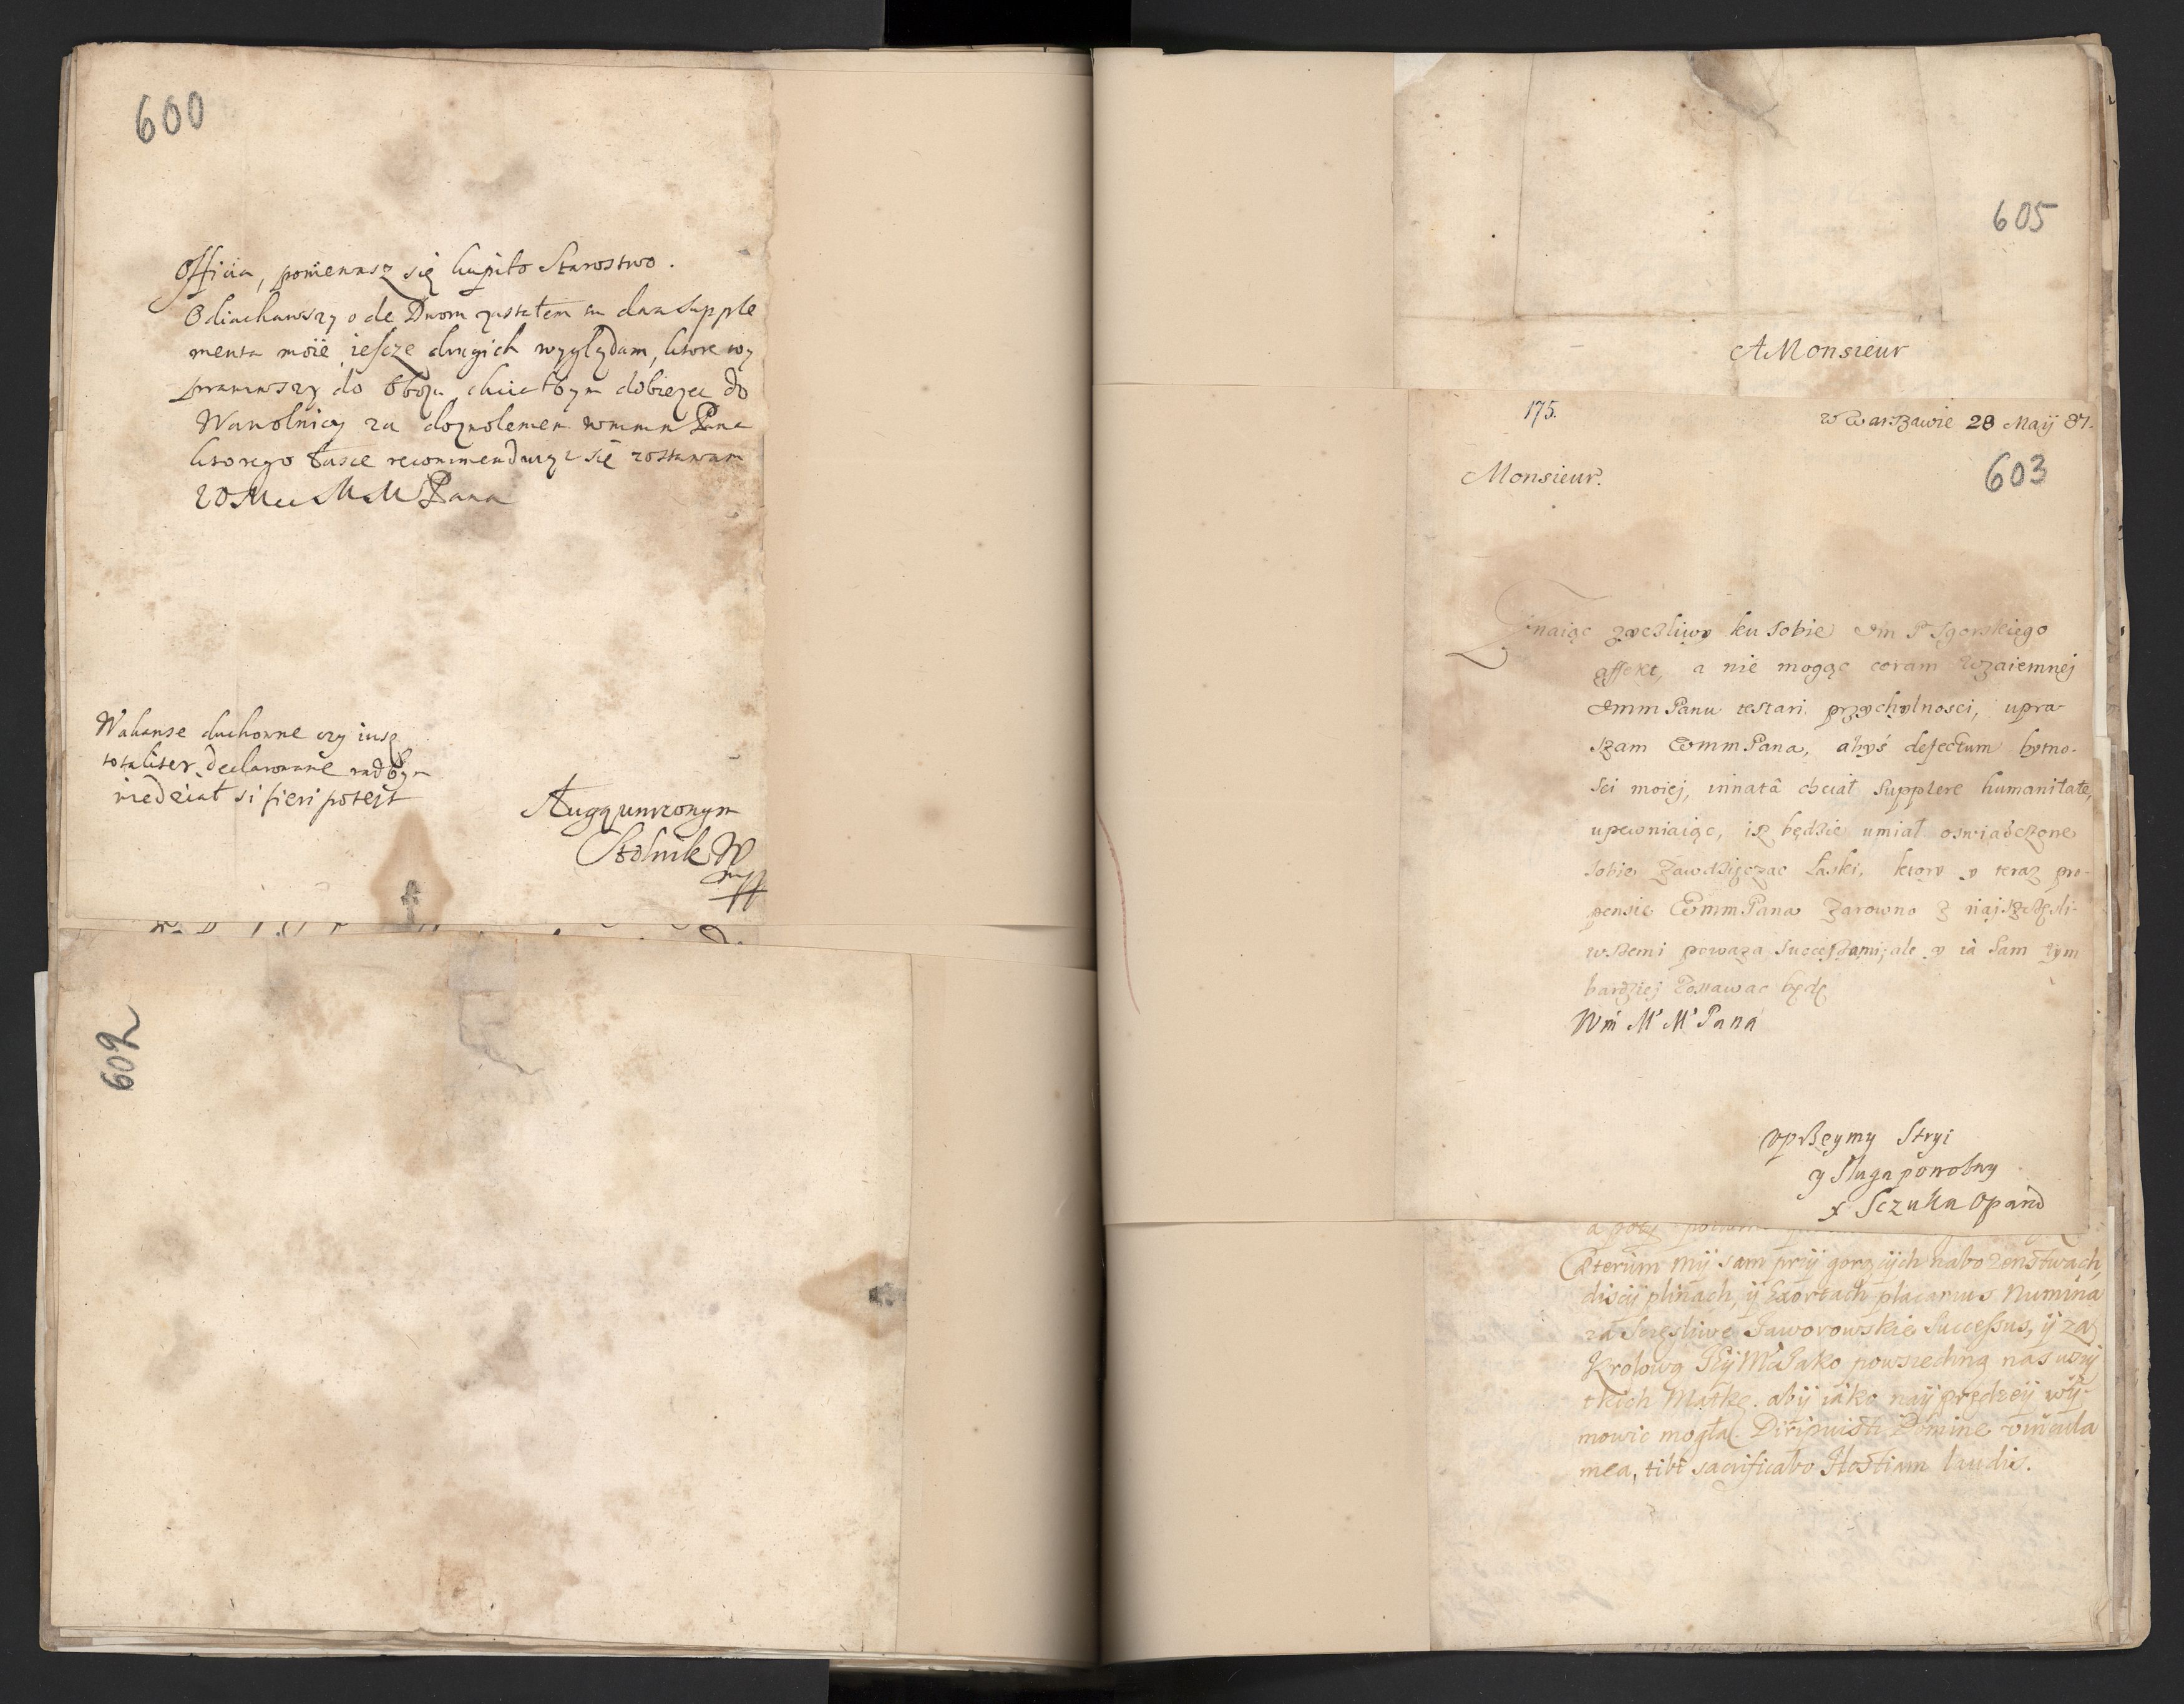 600
Officia, poniewasz się kupiło Starostwo.
Odiachawszy ode Dworu zastałem tu dwa supple
menta moie iescze drugich wyglądam, ktore wy
prawiwszy do Obozu chciałbym dobiezec do
Wawolnicy za dozwoleniem wmm Pana
ktorego łasce recommenduiąc się zostawam
WMM Pana
Wakanse duchowne czy iusz
totaliter declarowane radbym
wiedział si fieri potest
sługą unizonym
Stolnik W
mpp
602
605
A Monsieur
175.
w Warszawie 28 Maÿ 87.
603
Monsieur.
Znaiąc zyczliwy ku sobie Im P Zgorskiego
affekt, a nie mogąc coram wzaiemnej
Imm Panu testari przychylnosci, upra-
szam Wmm Pana, abyś defectum bytno-
sci moiej, innatâ chciał supplere humanitate,
upewniaiąc, iz będzie umiał oswiadczone
sobie zawdzięczac Łaski, ktory y teraz pro-
pensie Wmm Pana zarowno z najszczęsli-
wszemi powaza successami, ale y ia sam tym
bardziej zostawac będę
Wm M M Pana
Uprzeymy Stryi
y Sluga powolny
S Sczuka Opand
Cæterum my sam przÿ gorącÿch nabozenstwach,
disciÿplinach, ÿ Exortach placamus Numina
za Sczęsliwe Jaworowskie Successus, ÿ za
Krolową JeyMcia Jako powszechną nas wszÿ
tkich Matkę. abÿ iako naÿprędzeÿ wÿ-
mowic mogła. Diripuisti Domine vincula
mea, tibi sacrificabo Hostiam laudis.